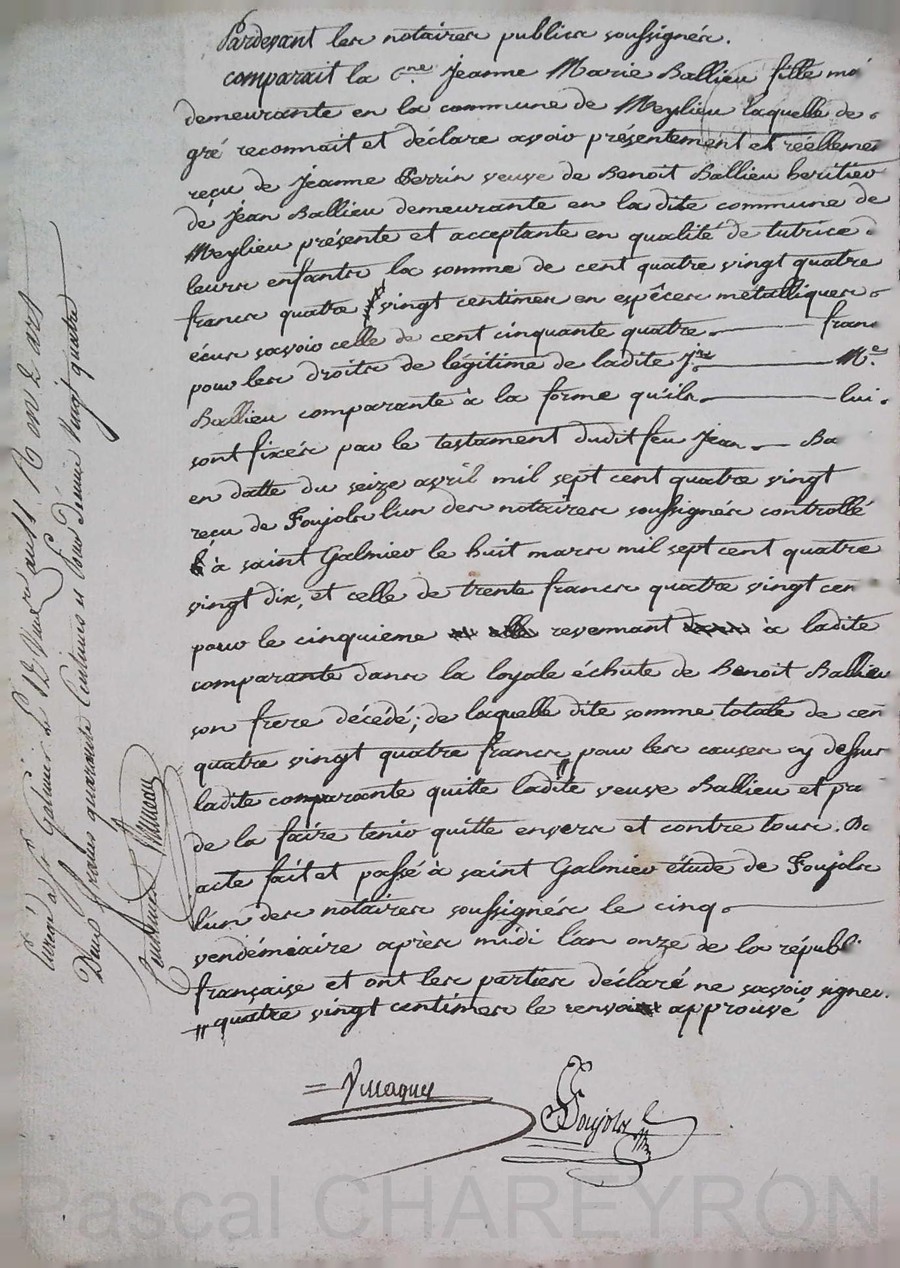 Pardevant les notaires publics soussignés.
comparait la Cne. Jeanne Marie Ballieu fille ma
demeurante en la commune de Meylieu laquelle de
gré reconnait et déclare avoir présentement et réellemen
reçu de Jeanne Perrin veuve de Benoit Ballieu heritier
de Jean Ballieu demeurante en la dite commune de
Meylieu présente et acceptante en qualité de tutrice d
leurs enfants la somme de cent quatre vingt quatre
francs quatre vingt centimes en espêces métalliques
écus savoir celle de cent cinquante quatre fran
pour les droits de légitime de ladite Jne Me
Ballieu comparante à la forme qu'ils lui
sont fixés par le testament dudit feu Jean Ba
en datte du seize avril mil sept cent quatre vingt
reçu de Foujols l'un des notaires soussignés controllé
à saint Galmier le huit mars mil sept cent quatre
vingt dix, et celle de trente francs quatre vingt cen
pour le cinquieme revennant à ladite
comparante dans la loyale échute de Benoit Ballieu
son frere décédé; de laquelle dite somme totale de cen
quatre vingt quatre francs " pour les causes cy dessus
ladite comparante quitte ladite veuve Ballieu et pr
de la faire tenir quitte envers et contre tous. D
acte fait et passé à saint Galmier étude de Foujols
l'un des notaires soussignés le cinq
vendémiaire après midi l'an onze de la républi
française et ont les parties déclaré ne savoir signer.
" quatre vingt centimes le renvoi approuvé
Foujols
à St Galmier le 12
Deux francs quarante Centimes et pour Décime Vingt quatre
Centimes
Pascal CHAREYRON